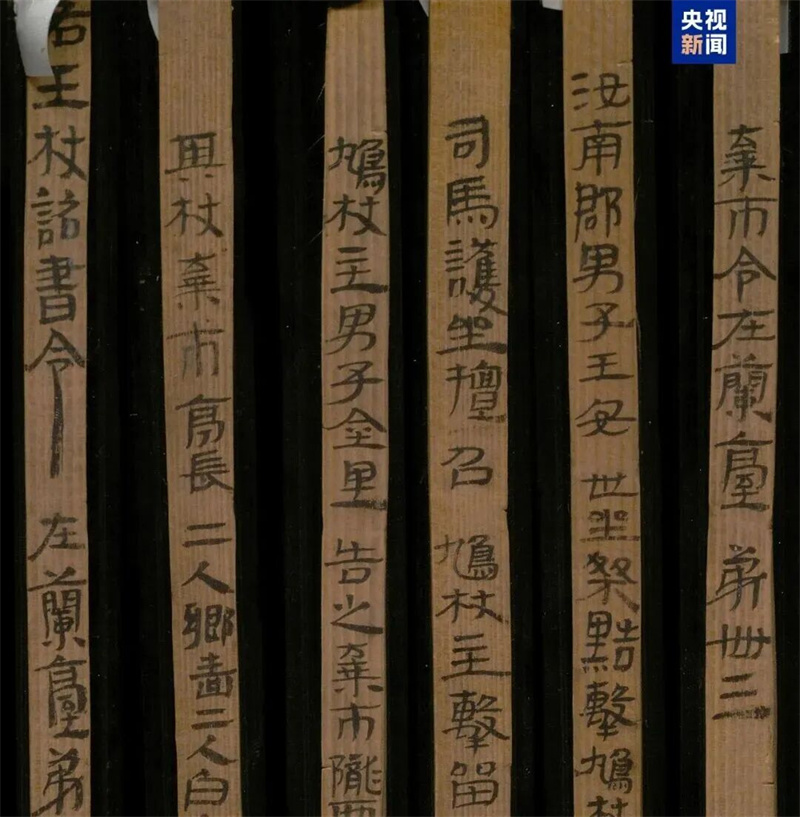 央视
新闻
棄市令在蘭臺第卌三
汝南郡男子王安世坐桀黠擊鳩杖
司馬護坐擅召鳩杖主擊留
鳩杖主男子金里告之棄市隴西
其杖棄市亭長二人鄉嗇二人白
右王杖詔書令在蘭臺第